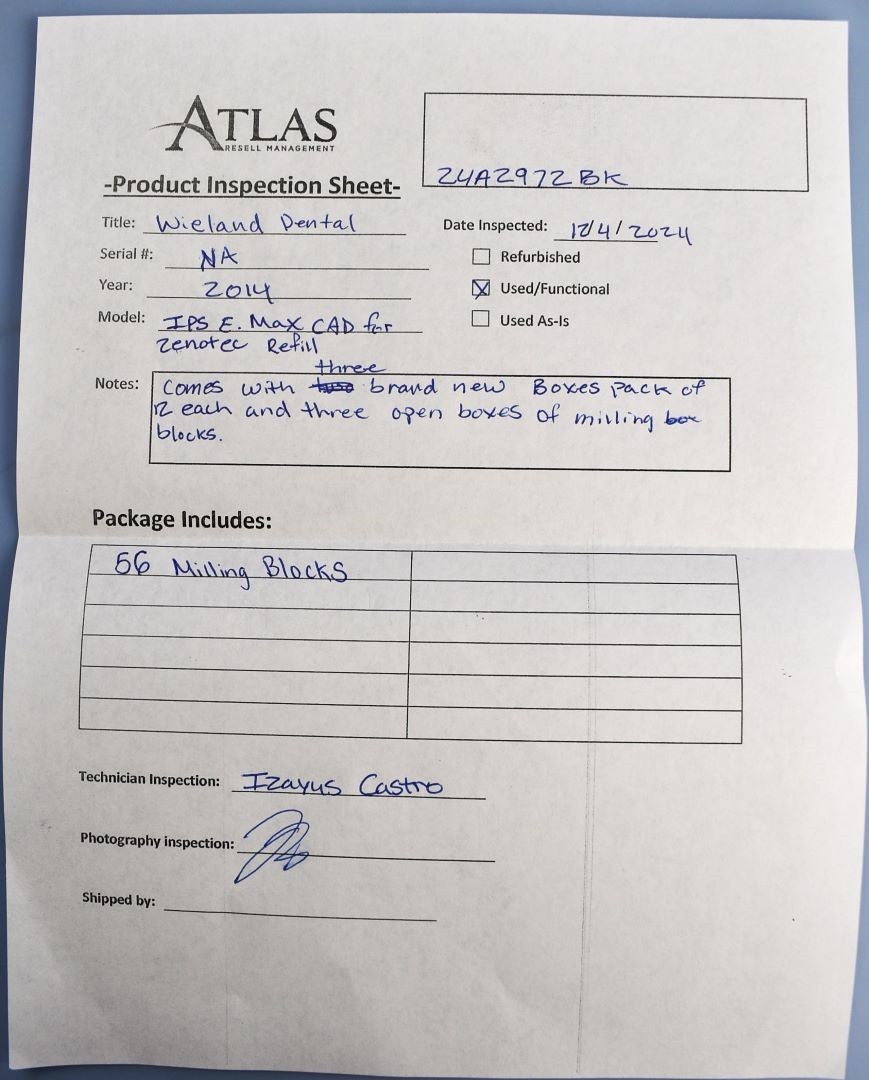 ATLAS
RESELL MANAGEMENT
24A2972BK
-Product Inspection Sheet-
Title: Wieland Dental
Date Inspected: 12/4/2024
Serial #: NA
Refurbished
Year: 2014
Used/Functional
Model: IPS E. Max CAD for
Zenotec Refill
Used As-Is
three
Notes: Comes with two brand new Boxes pack of
12 each and three open boxes of milling box
blocks.
Package Includes:
56 Milling Blocks
Technician Inspection: Izayus Castro
Photography inspection:
Shipped by: